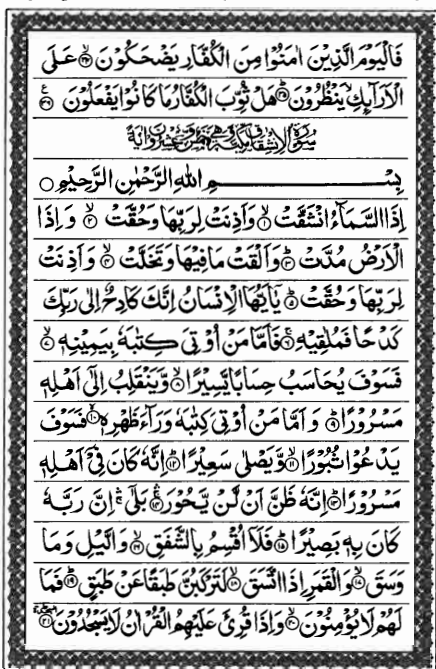 فَالْیَوْمَ الَّذِیْنَ اٰمَنُوْا مِنَ الْكُفَّارِ یَضْحَكُوْنَ ۙ۳۴ عَلَى
الْاَرَآىِٕكِ ۙ یَنْظُرُوْنَ ؕ۳۵ هَلْ ثُوِّبَ الْكُفَّارُ مَا كَانُوْا یَفْعَلُوْنَ ۠۳۶
سُوْرَةُ الْاِنْشِقَاقِ مَكِّیَّةٌ وَّهِیَ خَمْسٌ وَّعِشْرُوْنَ اٰیَةً
بِسْمِ اللّٰهِ الرَّحْمٰنِ الرَّحِیْمِ
اِذَا السَّمَآءُ انْشَقَّتْ ۙ۱ وَاَذِنَتْ لِرَبِّهَا وَحُقَّتْ ۙ۲ وَاِذَا
الْاَرْضُ مُدَّتْ ؕ۳ وَاَلْقَتْ مَا فِیْهَا وَتَخَلَّتْ ۙ۴ وَاَذِنَتْ
لِرَبِّهَا وَحُقَّتْ ؕ۵ یٰۤاَیُّهَا الْاِنْسَانُ اِنَّكَ كَادِحٌ اِلٰى رَبِّكَ
كَدْحًا فَمُلٰقِیْهِ ۚ۶ فَاَمَّا مَنْ اُوْتِیَ كِتٰبَهٗ بِیَمِیْنِهٖ ۙ۷
فَسَوْفَ یُحَاسَبُ حِسَابًا یَّسِیْرًا ۙ۸ وَّیَنْقَلِبُ اِلٰۤى اَهْلِهٖ
مَسْرُوْرًا ؕ۹ وَاَمَّا مَنْ اُوْتِیَ كِتٰبَهٗ وَرَآءَ ظَهْرِهٖ ۙ۱۰ فَسَوْفَ
یَدْعُوْا ثُبُوْرًا ۙ۱۱ وَّیَصْلٰى سَعِیْرًا ؕ۱۲ اِنَّهٗ كَانَ فِیْۤ اَهْلِهٖ
مَسْرُوْرًا ؕ۱۳ اِنَّهٗ ظَنَّ اَنْ لَّنْ یَّحُوْرَ ۚۛ۱۴ بَلٰۤى ۚۛ اِنَّ رَبَّهٗ
كَانَ بِهٖ بَصِیْرًا ؕ۱۵ فَلَاۤ اُقْسِمُ بِالشَّفَقِ ۙ۱۶ وَالَّیْلِ وَمَا
وَسَقَ ۙ۱۷ وَالْقَمَرِ اِذَا اتَّسَقَ ۙ۱۸ لَتَرْكَبُنَّ طَبَقًا عَنْ طَبَقٍ ؕ۱۹ فَمَا
لَهُمْ لَا یُؤْمِنُوْنَ ۙ۲۰ وَاِذَا قُرِئَ عَلَیْهِمُ الْقُرْاٰنُ لَا یَسْجُدُوْنَ ؕ۲۱